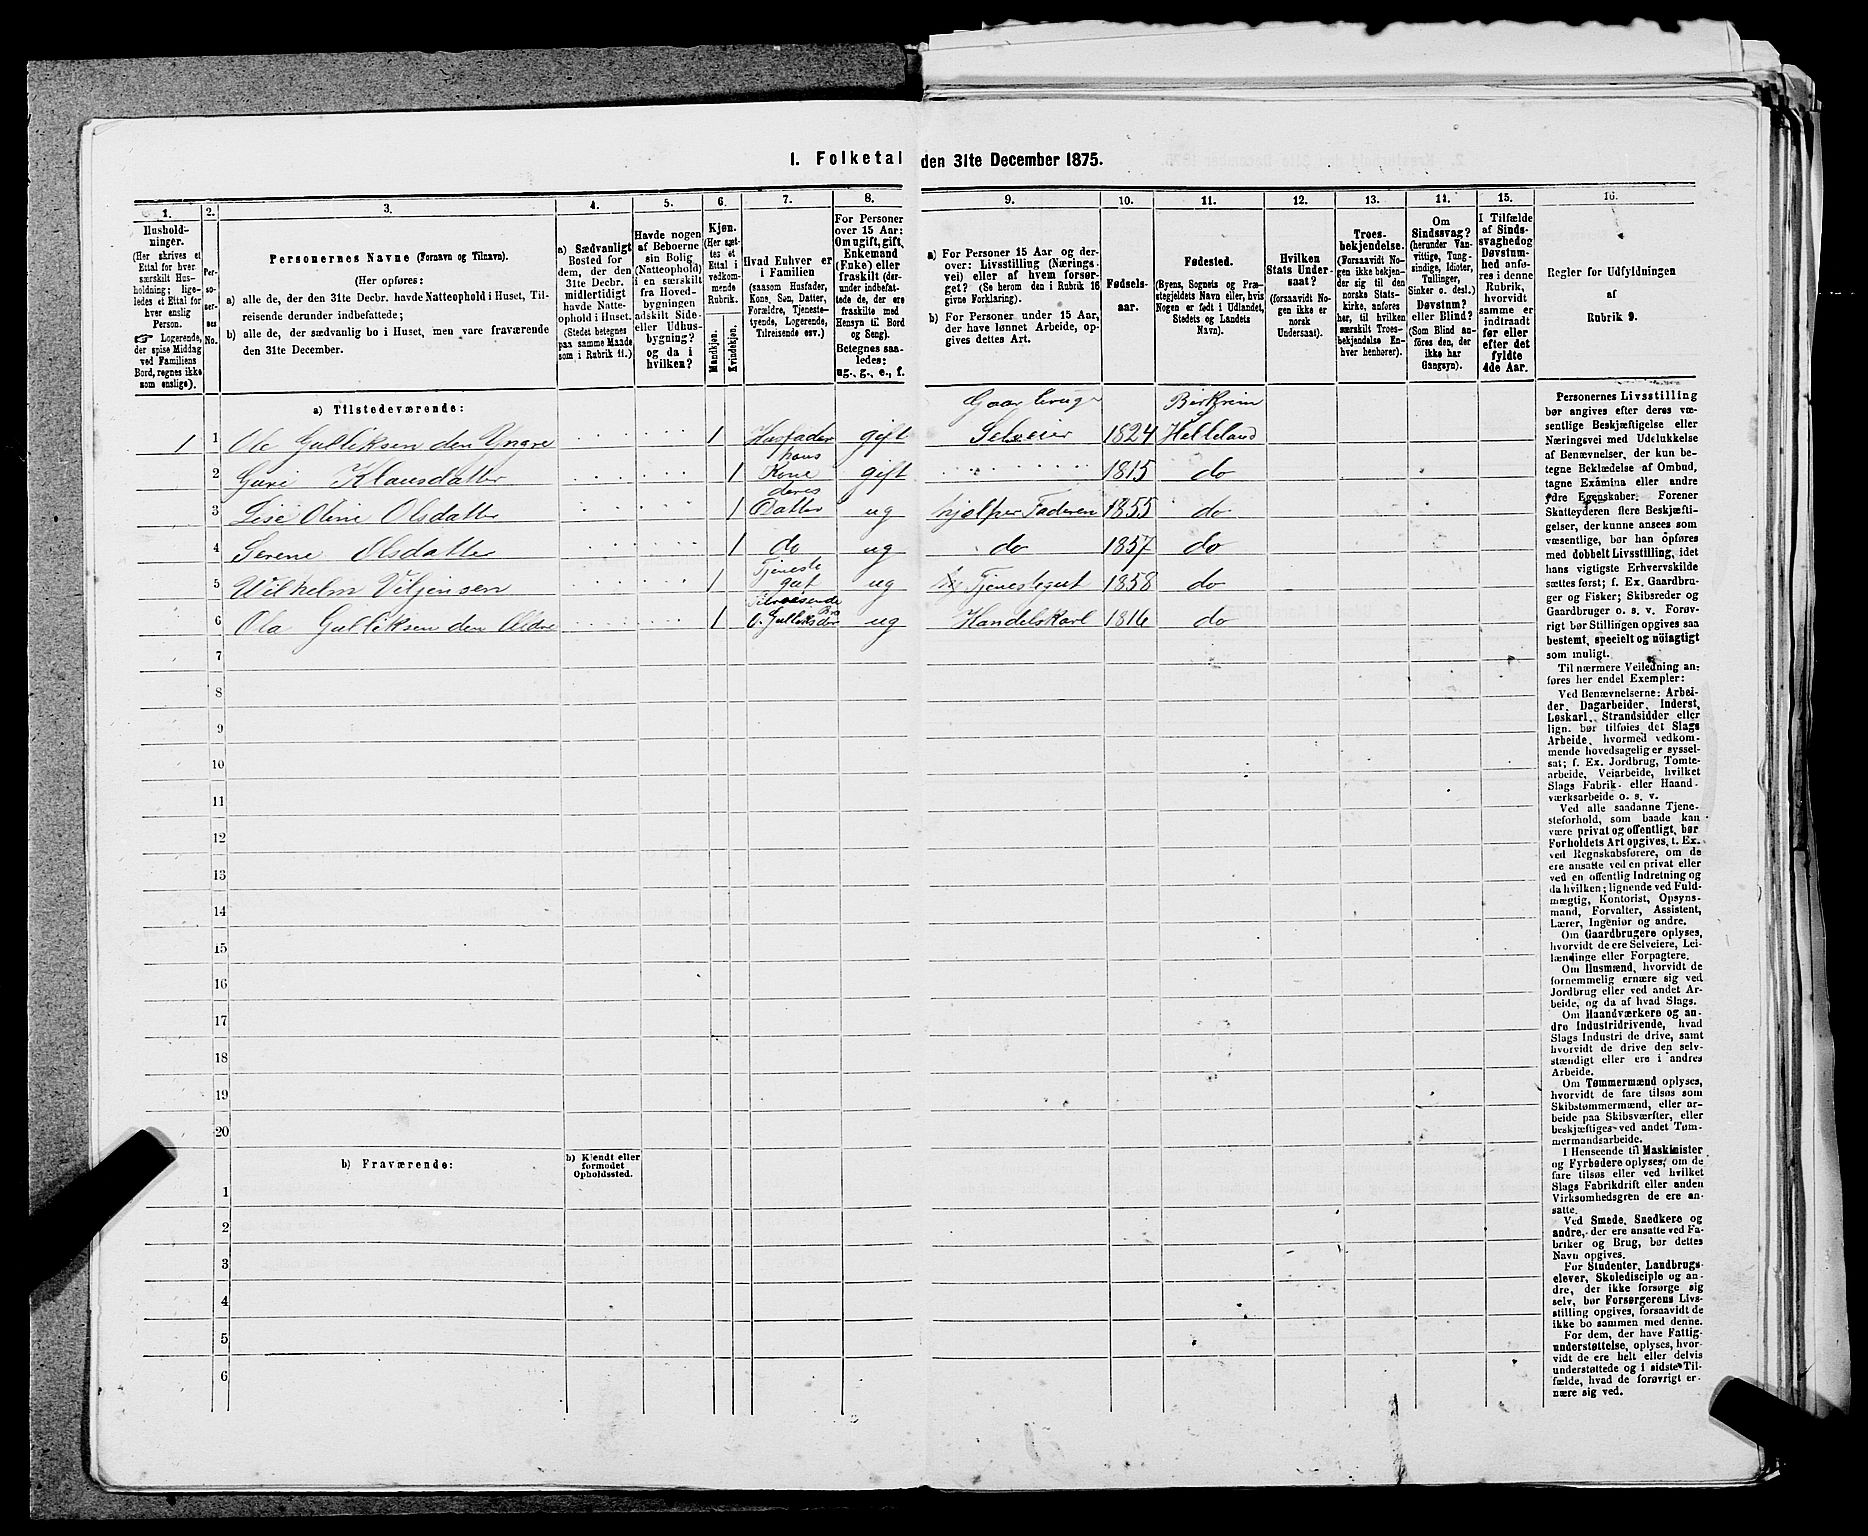 1. Folketal den 31te December 1875.
1.
2.
3.
4.
5.
6.
7.
8.
9.
10.
11.
12.
13.
14.
15.
16.
Hushold-
ninger.
(Her skrives et
Ettal for hver
særskilt Hus-
holdning; lige-
ledes et Ettal for
hver enslig
Person.
☞ Logerende,
der spise Middag
ved Familiens
Bord, regnes ikke
som enslige).
Per-
so-
ner-
nes
No.
Personernes Navne (Fornavn og Tilnavn).
(Her opføres:
a) alle de, der den 31te Decbr. havde Natteophold i Huset, Til-
reisende derunder indbefattede;
b) alle de, der sædvanlig bo i Huset, men vare fraværende
den 31te December.
a) Sædvanligt
Bosted for
dem, der den
31te Decbr.
midlertidigt
havde Natte-
ophold i Huset.
(Stedet betegnes
paa samme Maade
som i Rubrik 11.)
Havde nogen
af Beboerne
sin Bolig
(Natteophold)
i en særskilt
fra Hoved-
bygningen
adskilt Side-
eller Udhus-
bygning?
og da i
hvilken?
Kjøn.
(Her sæt-
tes et
Ettal i
vedkom-
mende
Rubrik.
Mandkjøn.
Kvindekjøn.
Hvad Enhver er
i Familien
(saasom Husfader,
Kone, Søn, Datter,
Forældre, Tjeneste-
tyende, Logerende,
Tilreisende osv.)
For Personer
over 15 Aar:
Om ugift, gift,
Enkemand
(Enke) eller
fraskilt (der-
under indbefat-
tede de, der ere
fraskilte med
Hensyn til Bord
og Seng).
Betegnes saa-
ledes:
ug., g., e., f.
a) For Personer 15 Aar og der-
over: Livsstilling (Nærings-
vei) eller af hvem forsør-
get? (Se herom den i Rubrik 16
givne Forklaring).
b) For Personer under 15 Aar,
der have lønnet Arbeide, op-
gives dettes Art.
Fødsels-
aar.
Fødested.
(Byens, Sognets og Præ-
stegjeldets Navn eller, hvis
Nogen er født i Udlandet,
Stedets og Landets
Navn).
Hvilken
Stats Under-
saat?
(forsaavidt No-
gen ikke er
norsk
Undersaat).
Troes-
bekjendelse.
(Forsaavidt No-
gen ikke bekjen-
der sig til den
norske Stats-
kirke, anføres
her, til hvilken
særskilt Troes-
bekjendelse En-
hver henhører).
Om
Sindssvag?
(herunder Van-
vittige, Tung-
sindige, Idioter,
Tullinger,
Sinker o. desl.)
Døvstum?
eller Blind?
(Som Blind an-
føres den, der
ikke har
Gangsyn).
I Tilfælde
af Sinds-
svaghed og
Døvstum-
hed anfø-
res i denne
Rubrik,
hvorvidt
samme er
indtraadt
før eller
efter det
fyldte
4de Aar.
Regler for Udfyldningen
af
Rubrik 9.
a) Tilstedeværende:
Gaarbruger Birkrem
1 1 Ole Gulliksen den Yngre 1 Husfader gift Selveier 1824 Helleland
2 Guri Klausdatter 1 hans Kone gift 1815 do
3 Lise Oline Olsdatter 1 deres Datter ug hjælper Faderen 1855 do
4 Serene Olsdatter 1 do ug do 1857 do
5 Wilhelm Viljensen 1 Tjeneste gut ug Tjenestegut 1858 do
6 Ola Gulliksen den Eldre 1 ug Handelskarl 1816 do
7
8
9
10
11
12
13
14
15
16
17
18
19
20
b) Fraværende:
b) Kjendt eller
formodet
Opholdssted.
1
2
3
4
5
6
Personernes Livsstilling
bør angives efter deres væ-
sentlige Beskjæftigelse eller
Næringsvei med Udelukkelse
af Benævnelser, der kun be-
tegne Beklædelse af Ombud,
tagne Examina eller andre
ydre Egenskaber. Forener
Skatteyderen flere Beskjæfti-
gelser, der kunne ansees som
væsentlige, bør han opføres
med dobbelt Livsstilling, idet
hans vigtigste Erhvervskilde
sættes først; f. Ex. Gaardbru-
ger og Fisker; Skibsreder og
Gaardbruger o. s. v. Forøv-
rigt bør Stillingen opgives saa
bestemt, specielt og nöiagtigt
som muligt.
Til nærmere Veiledning an-
føres her endel Exempler:
Ved Benævnelserne: Arbei-
der, Dagarbeider, Inderst,
Løskarl, Strandsidder eller
lign. bør tilføies det Slags
Arbeide, hvormed vedkom-
mende hovedsagelig er syssel-
sat; f. Ex. Jordbrug, Tomte-
arbeide, Veiarbeide, hvilket
Slags Fabrik- eller Haand-
værksarbeide o. s. v.
Ved alle saadanne Tjene-
steforhold, som baade kan
være privat og offentligt, bør
Forholdets Art opgives, t. Ex.
ved Regnskabsførere, om de
ere ansatte ved en privat eller
ved en offentlig Indretning og
da hvilken; lignende ved Fuld-
mægtig, Kontorist, Opsyns-
mand, Forvalter, Assistent,
Lærer, Ingeniør og andre.
Om Gaardbrugere oplyses,
hvorvidt de ere Selveiere, Lei-
lændinge eller Forpagtere.
Om Husmænd, hvorvidt de
fornemmelig ernære sig ved
Jordbrug eller ved andet Ar-
beide, og da af hvad Slags.
Om Haandværkere og an-
dre Industridrivende, hvad
Slags Industri de drive, samt
hvorvidt de drive den selv-
stændigt eller ere i andres
Arbeide.
Om Tømmermænd oplyses,
hvorvidt de fare tilsøs som
Skibstømmermænd, eller ar-
beide paa Skibsværfter, eller
beskjæftiges ved andet Tøm-
mermandsarbeide.
I Henseende til Maskinister
og Fyrbødere oplyses, om de
fare tilsøs eller ved hvilket
Slags Fabrikdrift eller anden
Virksomhedsgren de ere an-
satte.
Ved Smede, Snedkere og
andre, der ere ansatte ved Fa-
briker og Brug, bør dettes
Navn opgives.
For Studenter, Landbrugs-
elever, Skoledisciple og an-
dre, der ikke forsørge sig
selv, bør Forsørgerens Livs-
stilling opgives, forsaavidt de
ikke bo sammen med denne.
For dem, der have Fattig-
understøttelse, oplyses, hvor-
vidt de ere helt eller delvis
understøttede og i sidste Til-
fælde, hvad de forøvrigt er-
nære sig ved.